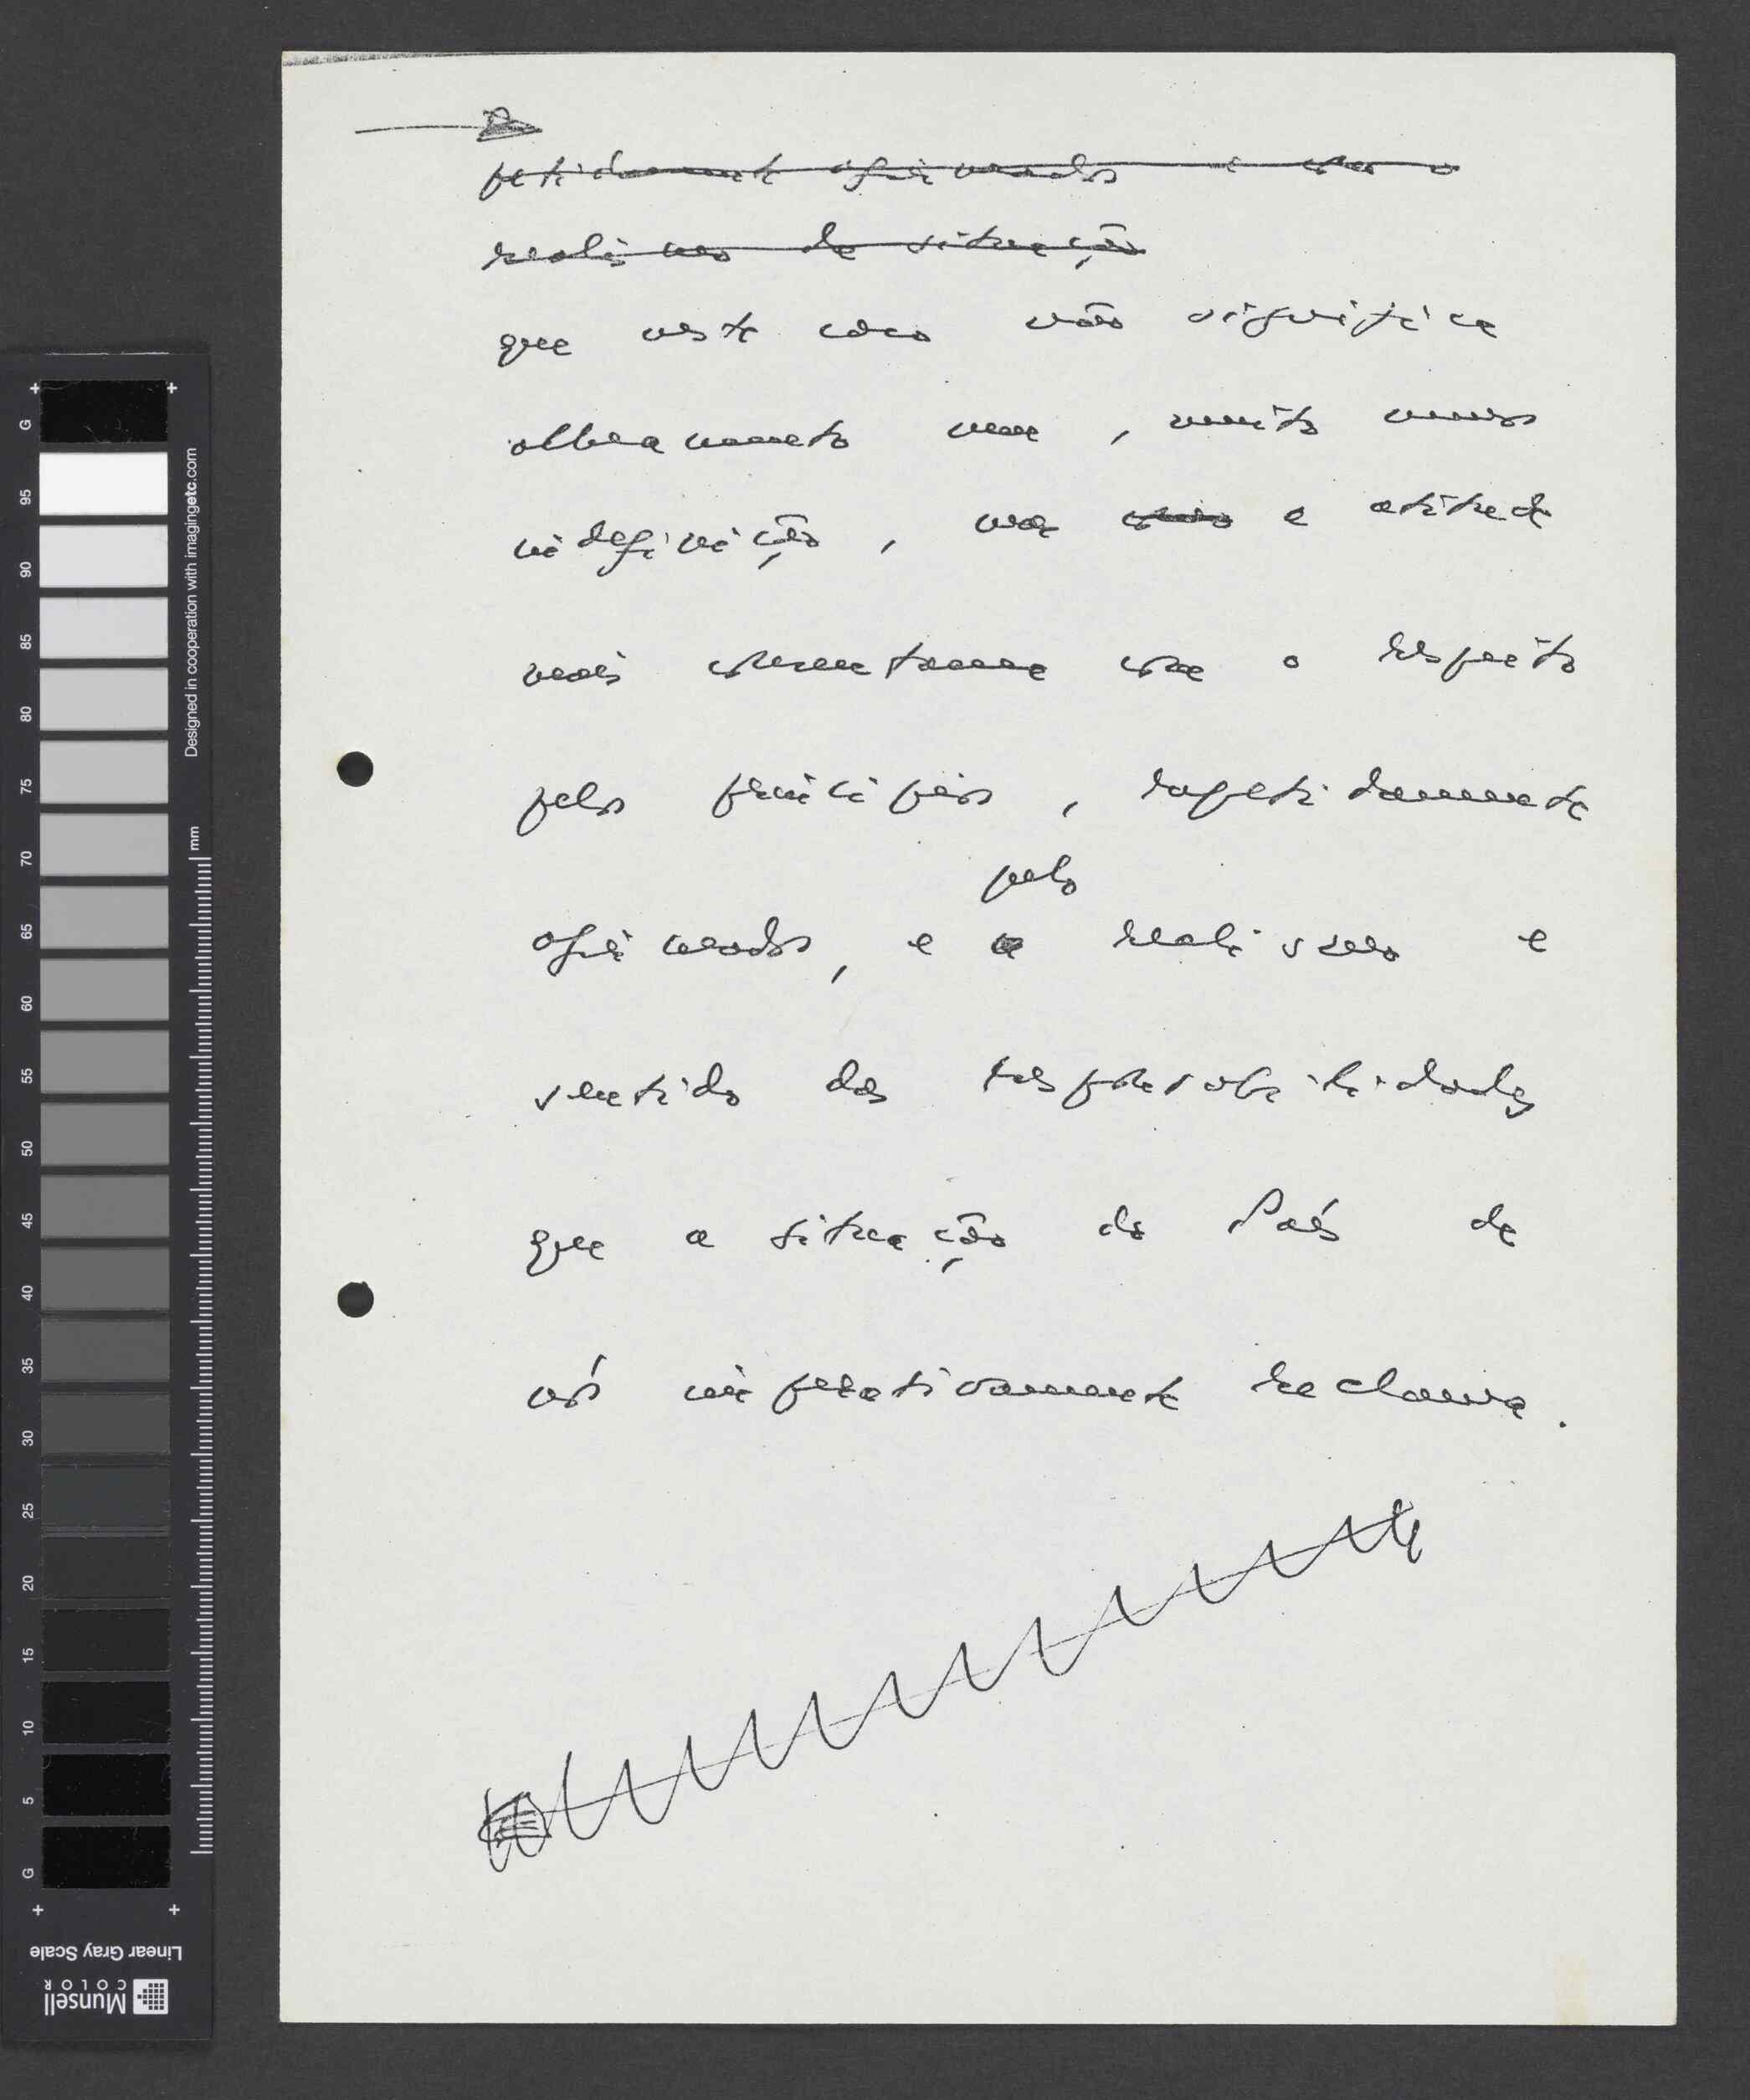 petidamente afirmados e com o
realismo da situação
que neste caso não significa
alheamento nem, muito menos
indefinição, mas a atitude
mais consentanea com o respeito
pelos princípios, repetidamente
pelo
afirmados, e realismo e
sentido das responsabilidades
que a situação do País de
nós imperativamente reclama.
G
95
90
85
80
75
70
65
60
55
50
45
40
35
30
25
20
15
10
5
G
Designed in cooperation with imagingetc.com
mm
Linear Gray Scale
Munsell
COLOR